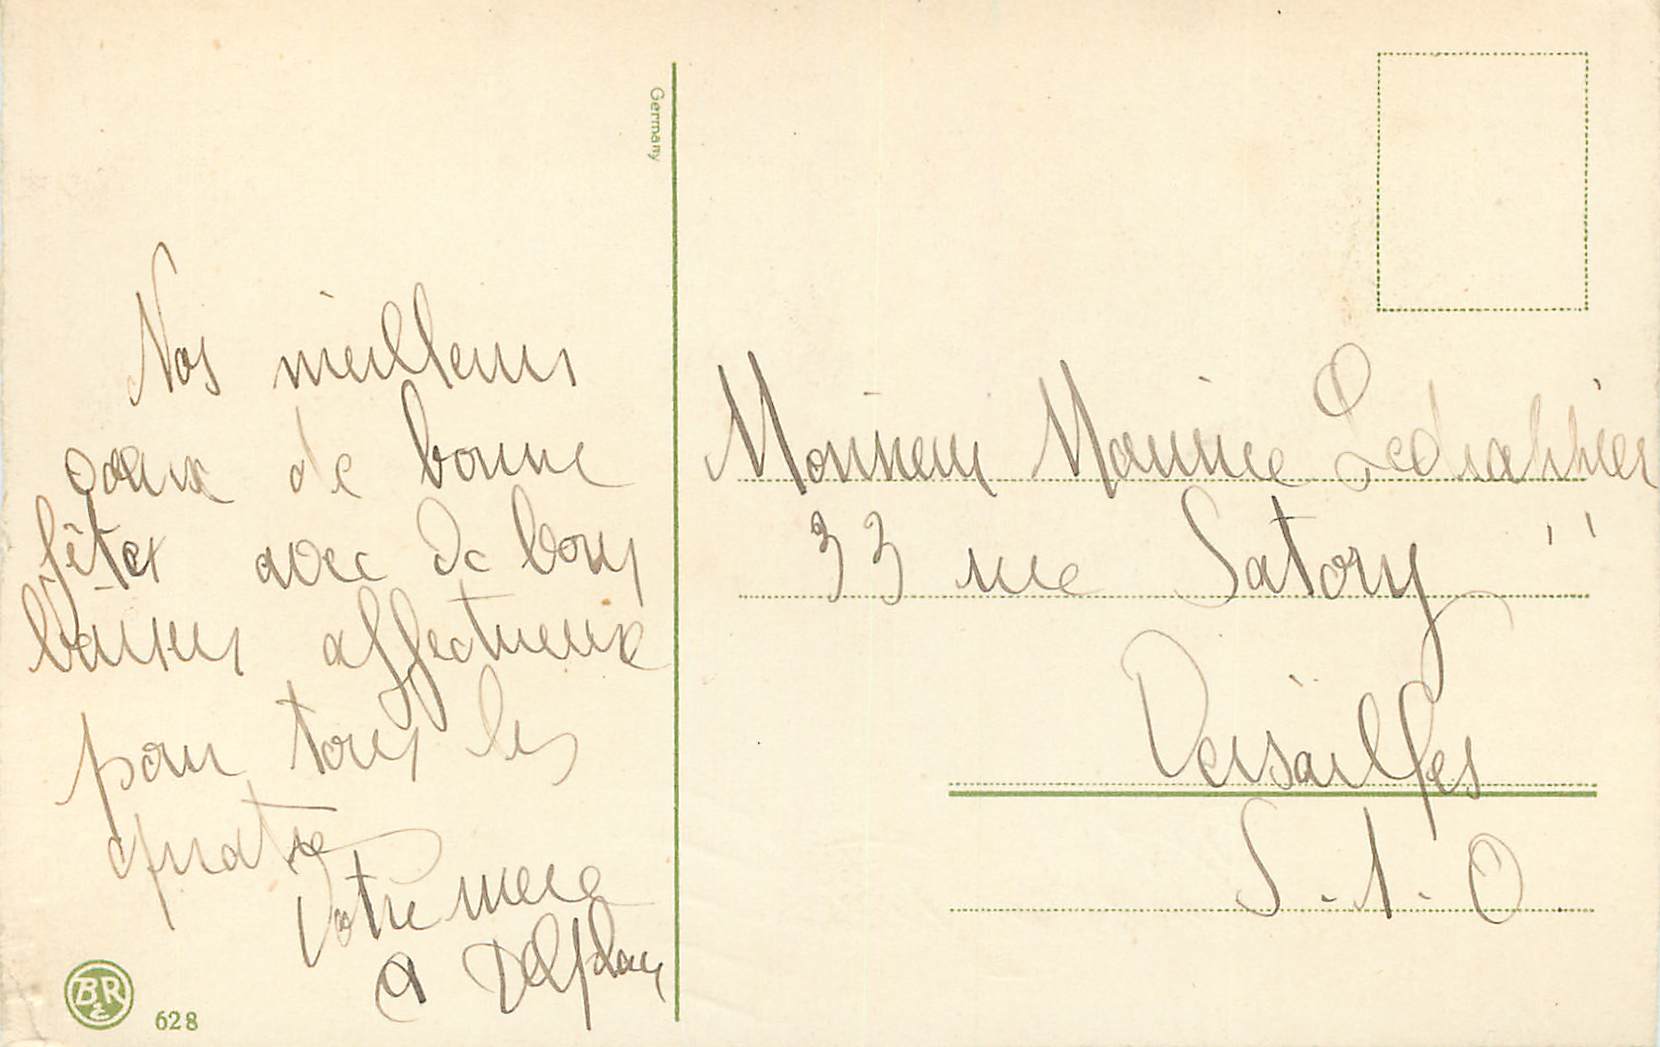 Germany
Nos meilleurs
voeux de bonne
fêtes avec de bons
baisers affectueux
pour tous les
quatre
Votre mère
a Delplan
Monsieur Maurice
33 rue Satory
Versailles
S.-1.-O.
BR
628